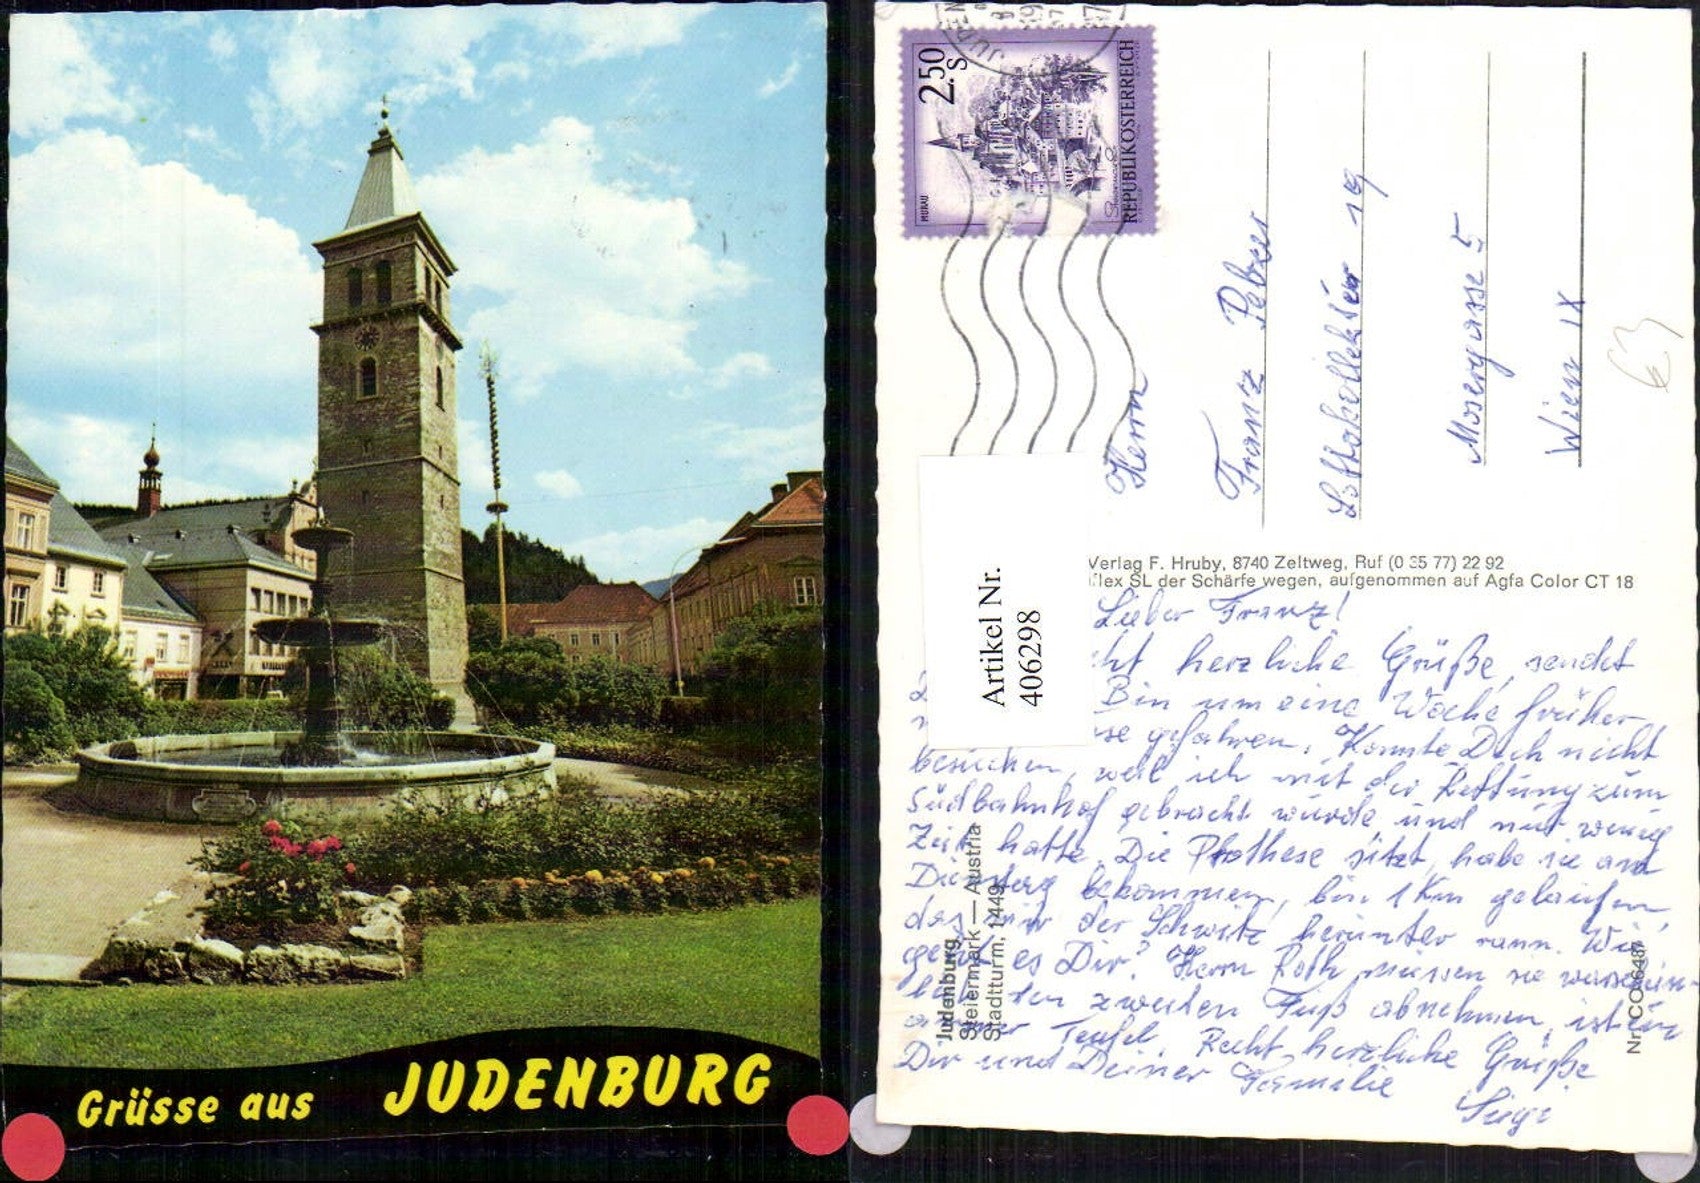 Grüsse aus JUDENBURG
2.50 S
MURAU
REPUBLIK ÖSTERREICH
Herrn
Franz
Lottokollektur 19
Mosergasse 5
Wien IX
63
Artikel Nr.
406298
Verlag F. Hruby, 8740 Zeltweg, Ruf (0 35 77) 22 92
flex SL der Schärfe wegen, aufgenommen auf Agfa Color CT 18
Judenburg
Steiermark — Austria
Stadtturm, 1449
Lieber Franz!
cht herzliche Grüße, sendet
Bin um eine Woche früher
se gefahren. Konnte Dich nicht
besuchen, weil ich mit der Rettung zum
Südbahnhof gebracht wurde und nur wenig
Zeit hatte. Die Prothese sitzt, habe sie am
Dienstag bekommen, bin 1 Km gelaufen,
das mir der Schwitz herunter rann. Wie
geht es Dir? Herrn Roth müssen sie
den zweiten Fuß abnehmen, ist ein
armer Teufel. Recht herzliche Grüße
Dir und Deiner Familie